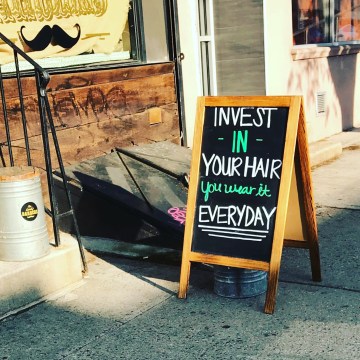 INVEST
- IN -
YOUR HAIR
you wear it
EVERYDAY